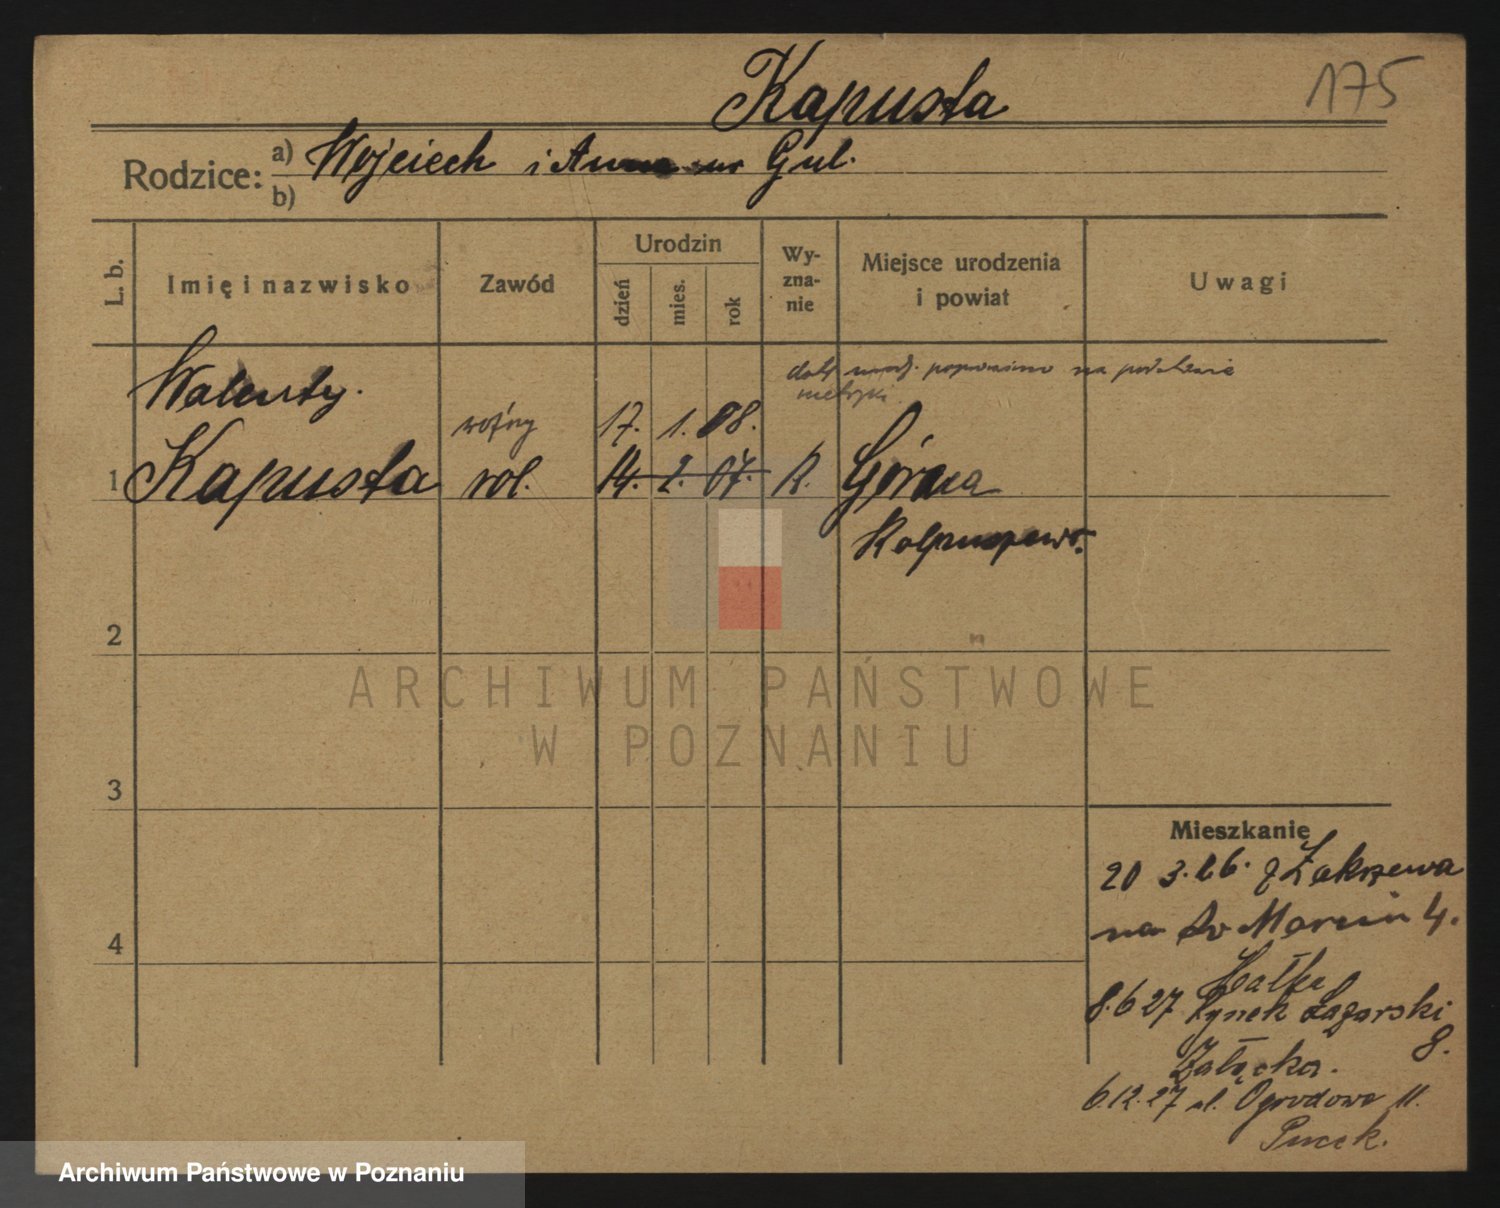 Kapusta
175
Rodzice:
a) Wojciech i Anna ur Gul.
b)
L. b.
Imię i nazwisko
Zawód
Urodzin
dzień
mies.
rok
Wy-
zna-
nie
Miejsce urodzenia
i powiat
Uwagi
datę urodz. poprawiono na podstawie
metryki
Walenty.
woźny
17. 1. 08.
1 Kapusta rol. 14. 2. 07. R. Górna
2
3
4
Mieszkanie
20 3. 26. z Zakrzewa
na Św Marcin 4.
8.6 27 Rynek Łazarski
8.
Załęcka.
6.12.27 ul. Ogrodowa 11.
ARCHIWUM PAŃSTWOWE
W POZNANIU
Archiwum Państwowe w Poznaniu